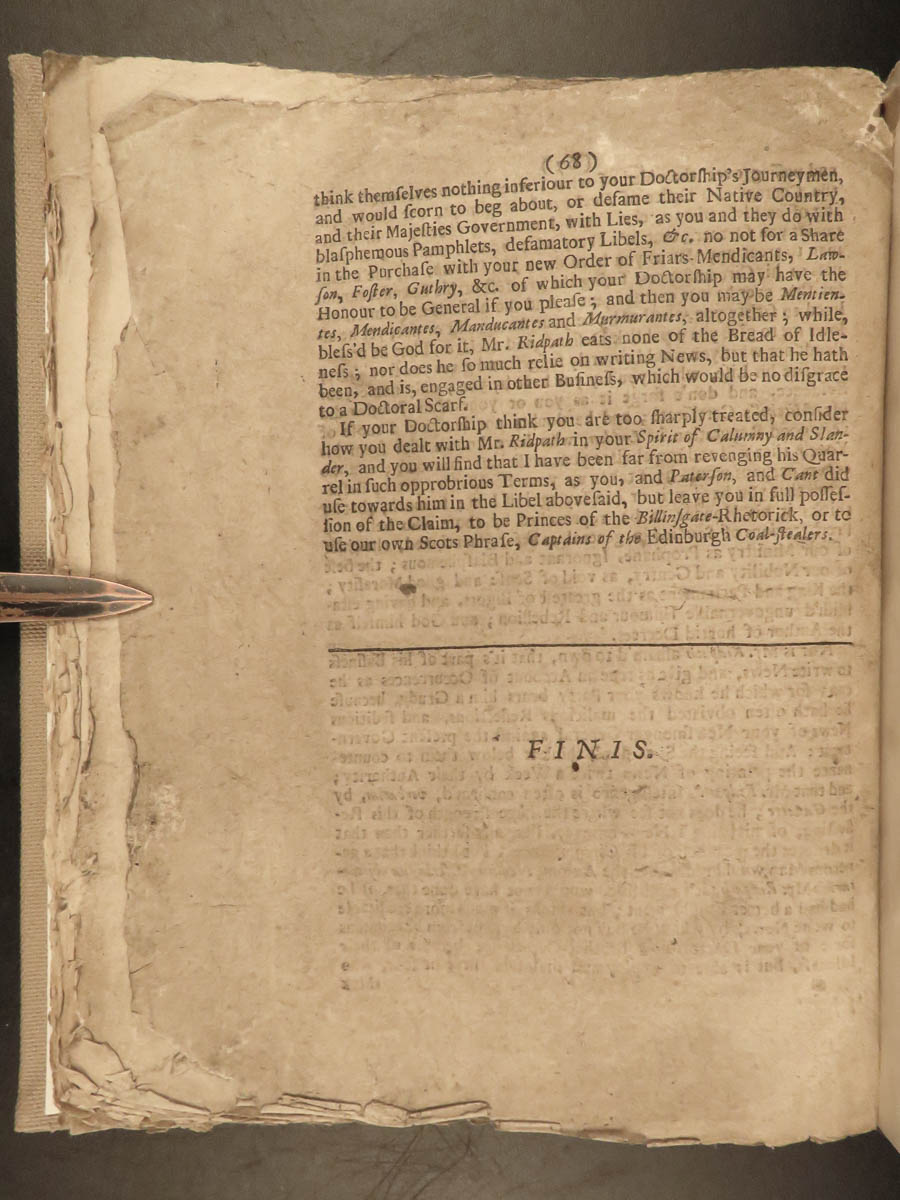 (68)
think themſelves nothing inferiour to your Doctorſhip's Journeymen,
and would ſcorn to beg about, or defame their Native Country,
and their Majeſties Government, with Lies, as you and they do with
blaſphemous Pamphlets, defamatory Libels, &c. no not for a Share
in the Purchaſe with your new Order of Friars-Mendicants, Law-
ſon, Foſter, Guthry, &c. of which your Doctorſhip may have the
Honour to be General if you pleaſe; and then you may be Mentien-
tes, Mendicantes, Manducantes and Murmurantes, altogether; while,
bleſs'd be God for it, Mr. Ridpath eats none of the Bread of Idle-
neſs; nor does he ſo much relie on writing News, but that he hath
been, and is, engaged in other Buſineſs, which would be no diſgrace
to a Doctoral Scarf.
If your Doctorſhip think you are too ſharply treated, conſider
how you dealt with Mr. Ridpath in your Spirit of Calumny and Slan-
der, and you will find that I have been far from revenging his Quar-
rel in ſuch opprobrious Terms, as you, and Paterſon, and Cant did
uſe towards him in the Libel aboveſaid, but leave you in full poſſeſ-
ſion of the Claim, to be Princes of the Billinſgate-Rhetorick, or to
uſe our own Scots Phraſe, Captains of the Edinburgh Coal-ſtealers.
FINIS.